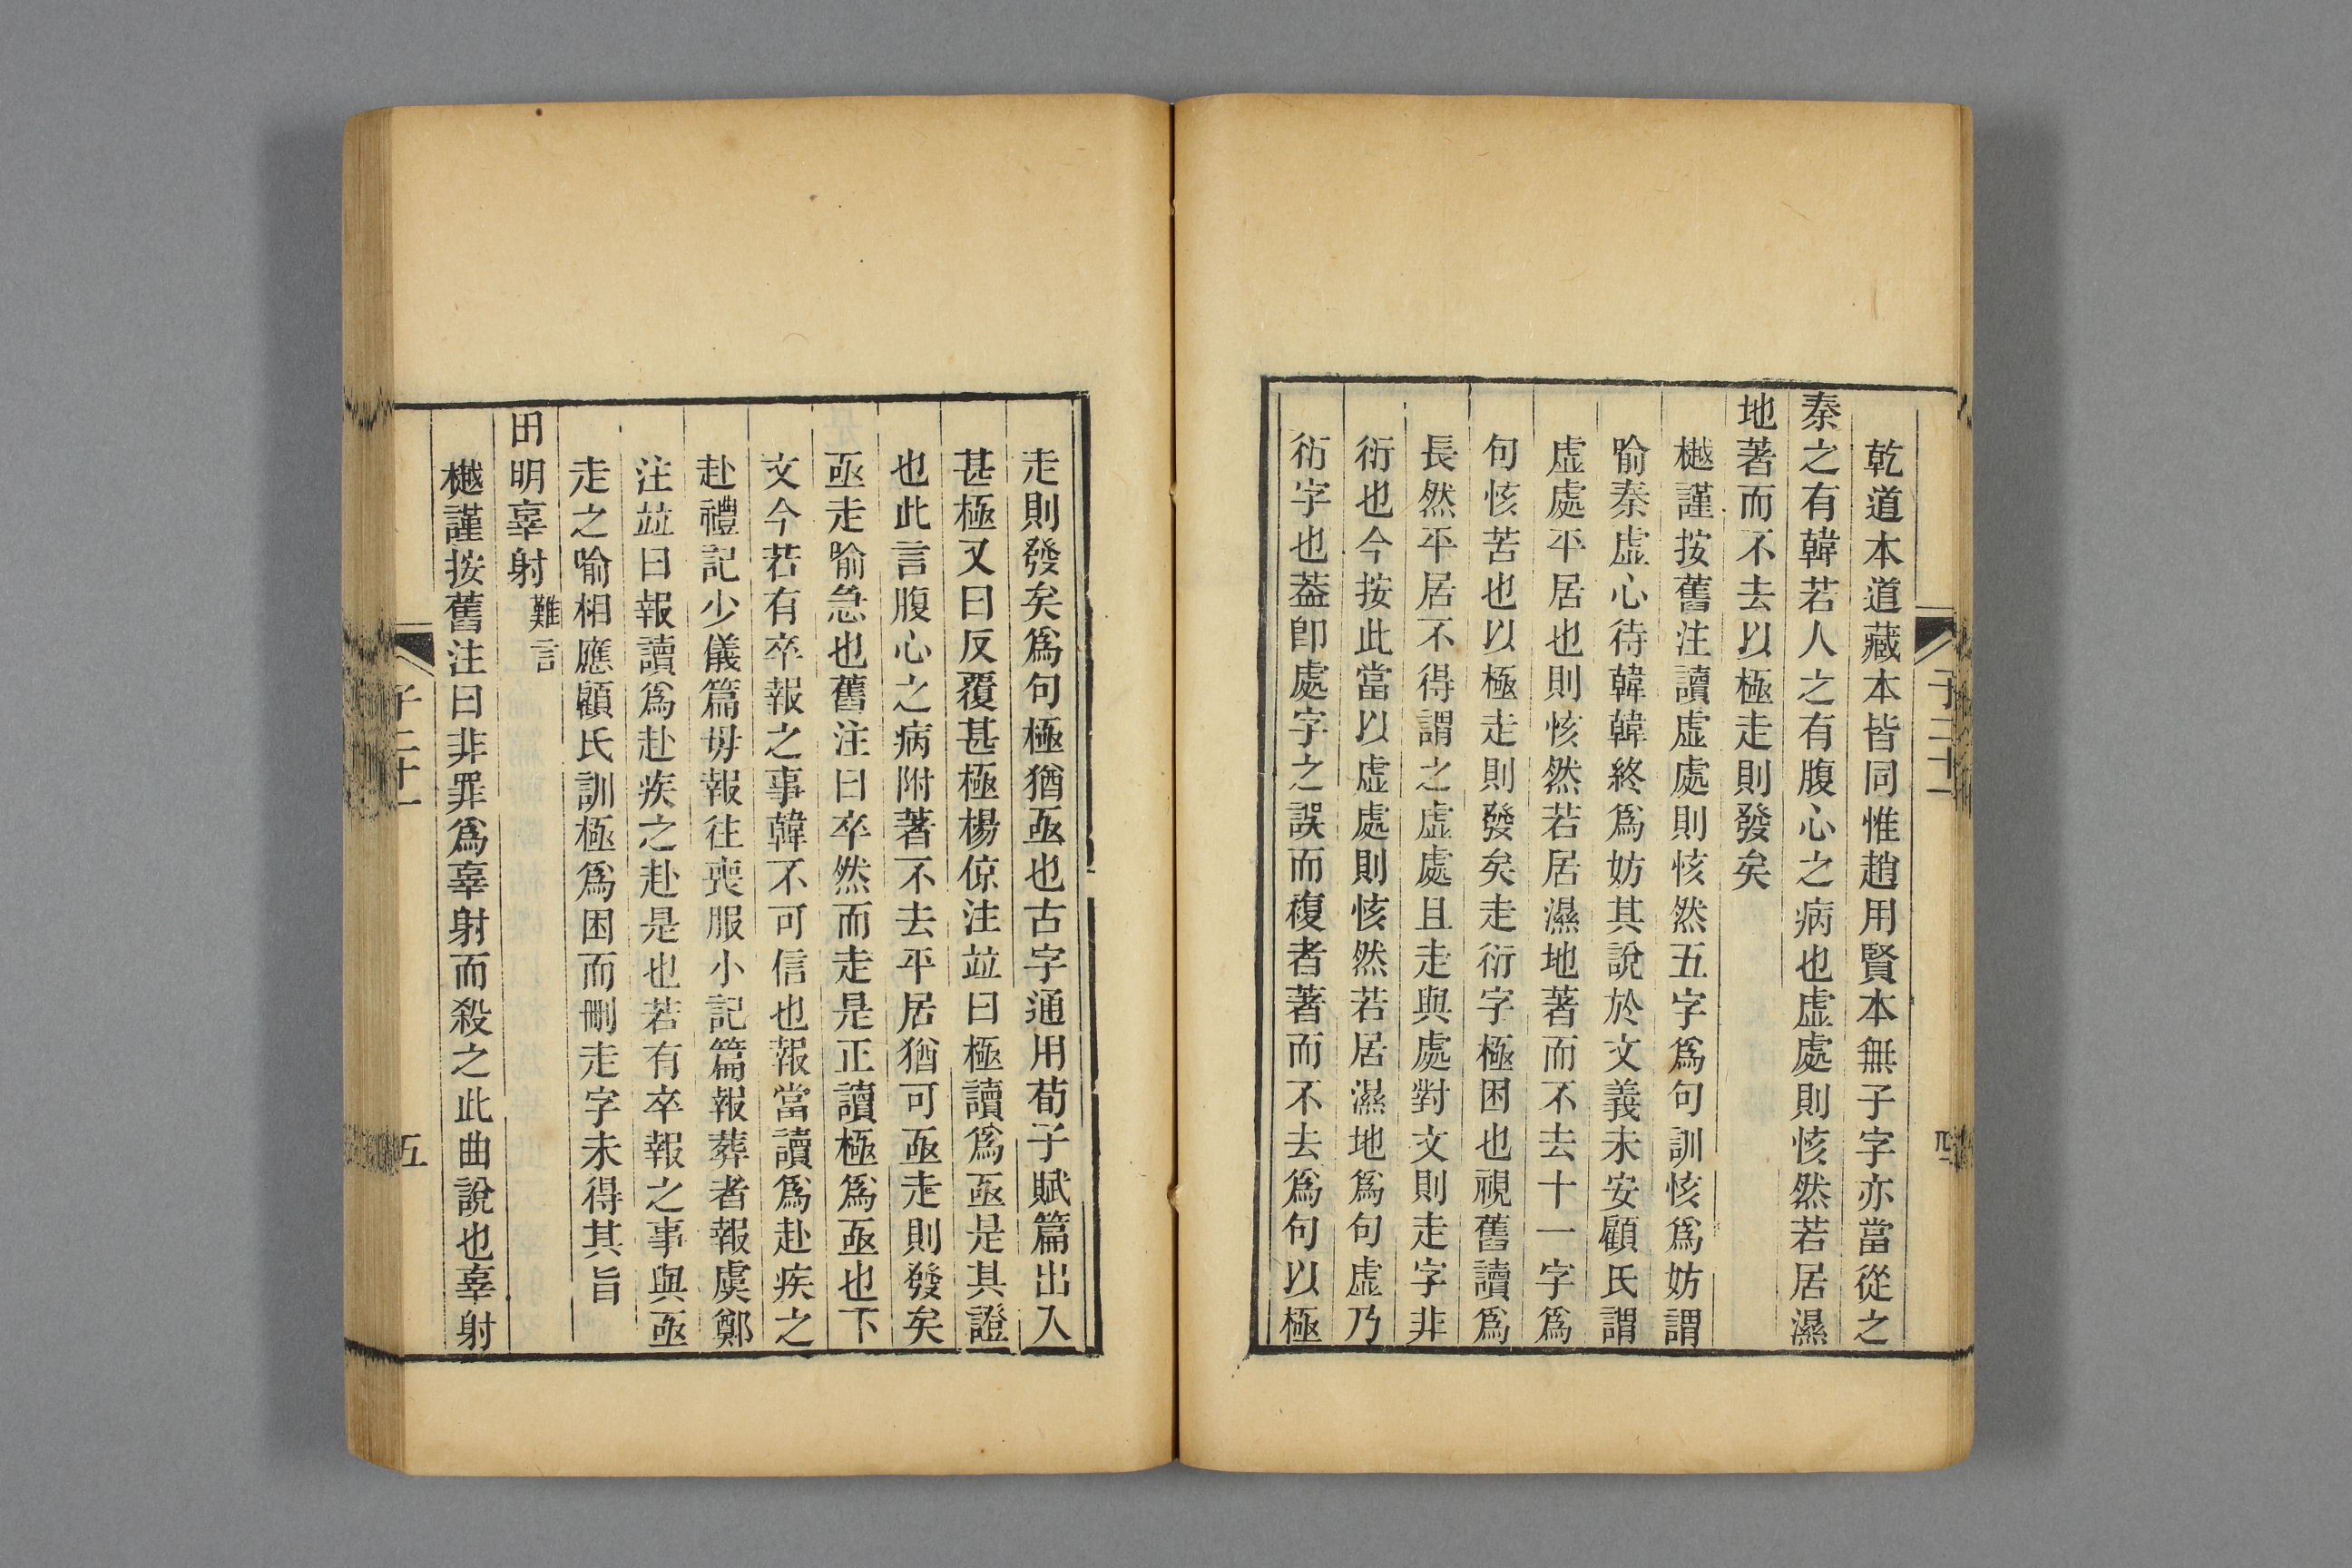 乾道本道藏本皆同惟趙用賢本無子字亦當從之
秦之有韓若人之有腹心之病也虛處則㤥然若居濕
地著而不去以極走則發矣
樾謹按舊注讀虛處則㤥然五字爲句訓㤥爲妨謂
喻秦虛心待韓韓終爲妨其說於文義未安顧氏謂
虛處平居也則㤥然若居濕地著而不去十一字爲
句㤥苦也以極走則發矣走衍字極困也視舊讀爲
長然平居不得謂之虛處且走與處對文則走字非
衍也今按此當以虛處則㤥然若居濕地爲句虛乃
衍字也葢卽處字之誤而複者著而不去爲句以極
子二十一
四
走則發矣爲句極猶亟也古字通用荀子賦篇出入
甚極又曰反覆甚極楊倞注竝曰極讀爲亟是其證
也此言腹心之病附著不去平居猶可亟走則發矣
亟走喻急也舊注曰卒然而走是正讀極爲亟也下
文今若有卒報之事韓不可信也報當讀爲赴疾之
赴禮記少儀篇毋報往喪服小記篇報葬者報虞鄭
注竝曰報讀爲赴疾之赴是也若有卒報之事與亟
走之喻相應顧氏訓極爲困而刪走字未得其旨
田明辜射難言
樾謹按舊注曰非罪爲辜射而殺之此曲說也辜射
子二十一
五